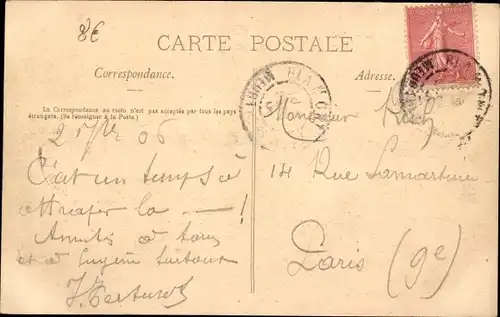 8€
CARTE POSTALE
Correspondance.
Adresse.
La Correspondance au recto n'est pas acceptée par tous les pays
étrangers. (Se renseigner à la Poste.)
06
C'est un temps à
attraper la — !
Amitiés à tous
et à Eugénie surtout
Monsieur
14 Rue Lamartine
Paris (9e)